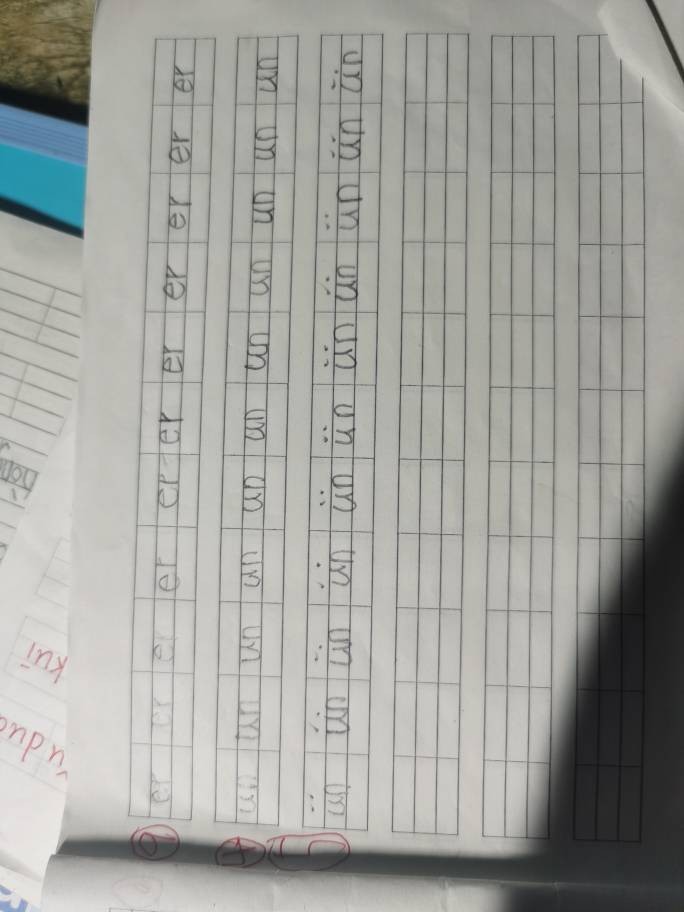 er er er er er er er er er er er
un un un un un un un un un un un
ün ün ün ün ün ün ün ün ün ün ün
kuī